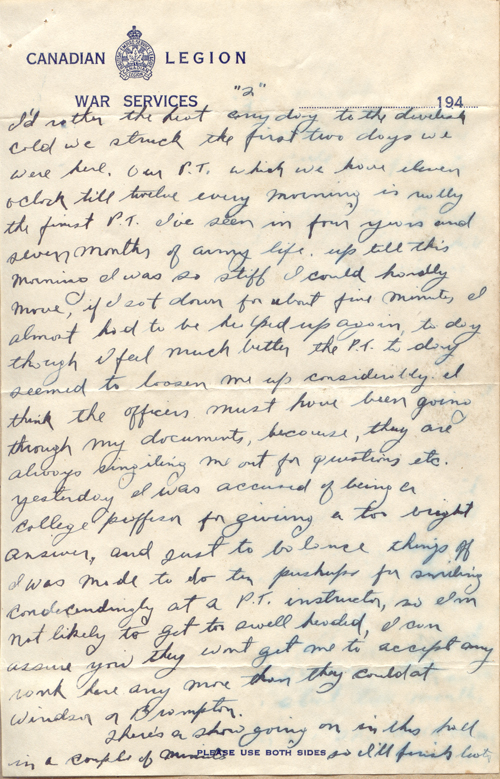 CANADIAN LEGION
WAR SERVICES "2" 194
I'd rather the heat any day to the devilish
cold we struck the first two days we
were here. Our P.T. which we have eleven
oclock till twelve every morning is really
the finest P.T. I've seen in four years and
seven months of army life. up till this
morning I was so stiff I could hardly
move, if I sat down for about five minutes I
almost had to be helped up again, to day
though I feel much better the P.T. to day
seemed to loosen me up considerably. I
think the officers must have been going
through my documents, because, they are
always singiling me out for questions etc.
yesterday I was accused of being a
college proffisor for giving a too bright
answer, and just to balance things off
I was made to do ten pushups for smiling
condecendingly at a P.T. instructor, so I'm
not likely to get too swell headed, I can
assure you they wont get me to accept any
rank here any more than they could at
Windsor or Brampton.
There's a show going on in this hall
in a couple of so I'll finish
PLEASE USE BOTH SIDES